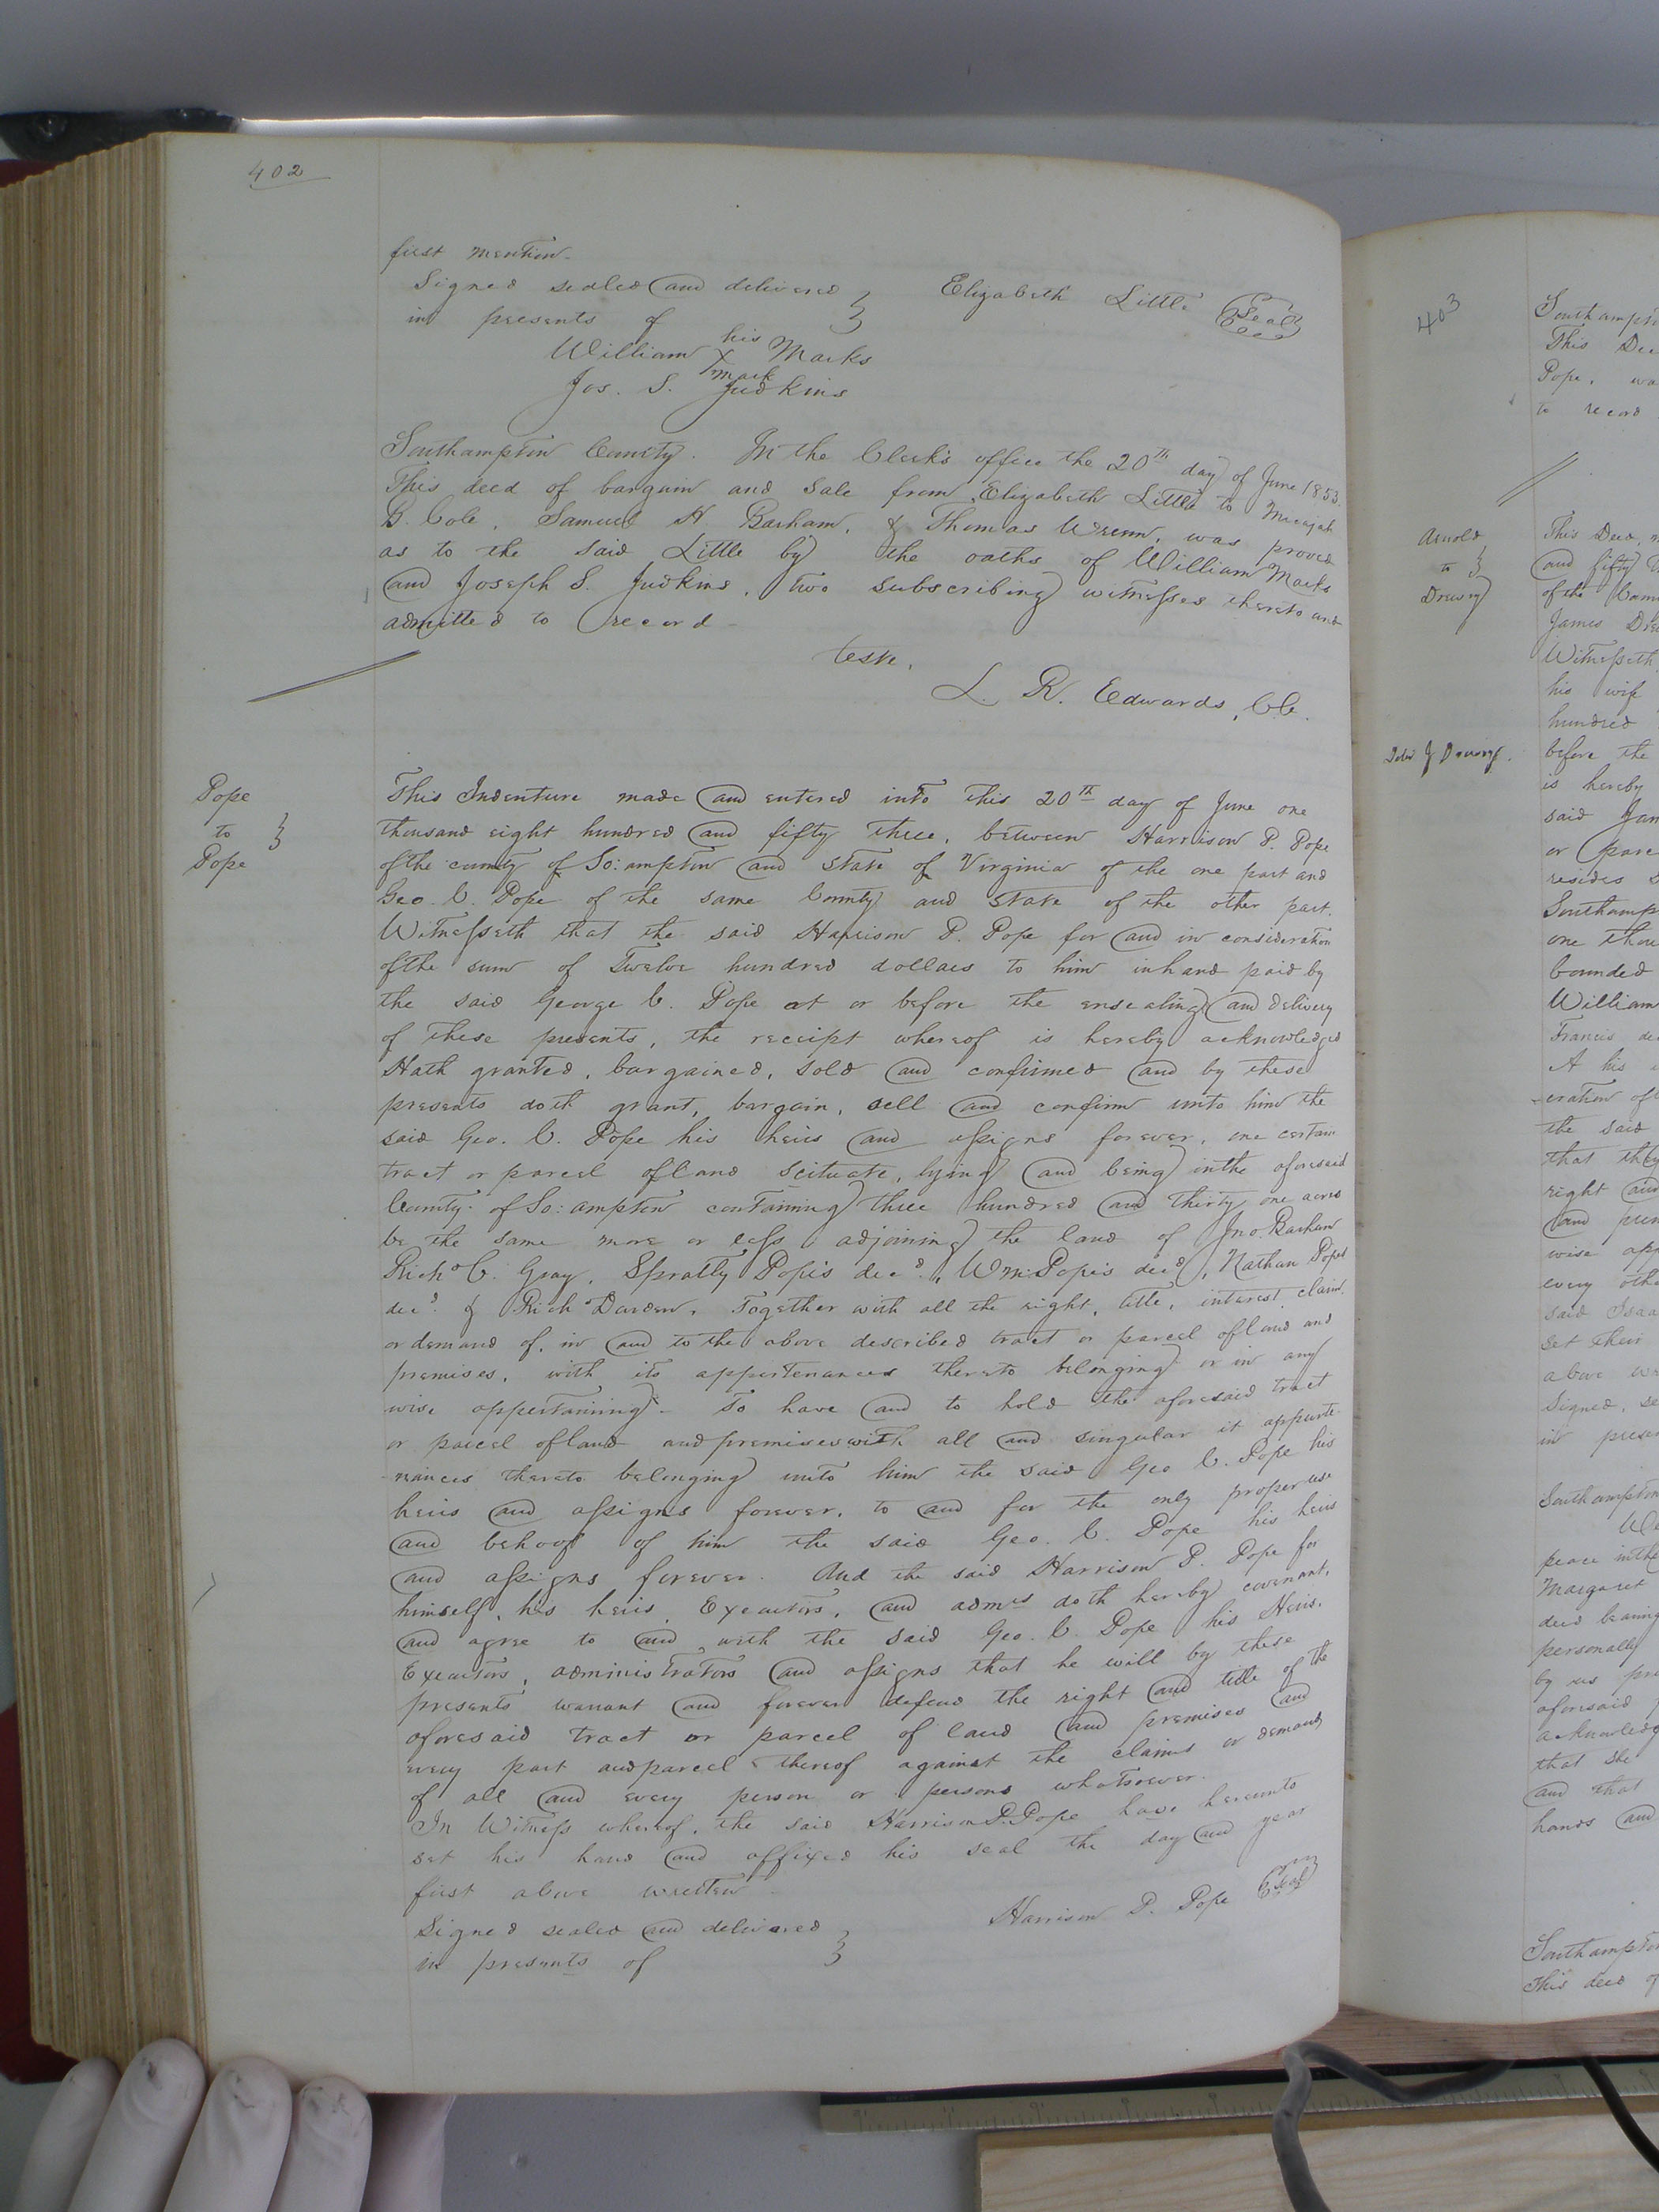 402
first mention.
Signed sealed and delivered } Elizabeth Little Seal
in presents of
his
William X Marks
mark
Jos. S. Judkins
Southampton County. In the Clerk's office the 20th day of June 1853.
This deed of bargain and sale from Elizabeth Little to Micajah
B. Cole, Samuel H. Barham, & Thomas Wrenn, was proved
as to the said Little by the oaths of William Marks
and Joseph S. Judkins, two subscribing witnesses thereto and
admitted to record
Teste,
L. R. Edwards, CC.
Pope
to }
Pope
This Indenture made and entered into this 20th day of June one
thousand eight hundred and fifty three, between Harrison P. Pope
of the county of So:ampton and state of Virginia of the one part and
Geo. C. Pope of the same County and state of the other part.
Witnesseth that the said Harrison P. Pope for and in consideration
of the sum of Twelve hundred dollars to him in hand paid by
the said George C. Pope at or before the ensealing and delivery
of these presents, the receipt whereof is hereby acknowledged
Hath granted, bargained, sold and confirmed and by these
presents doth grant, bargain, sell and confirm unto him the
said Geo. C. Pope his heirs and assigns forever, one certain
tract or parcel of land scituate, lying and being in the aforesaid
County of So:ampton containing three hundred and thirty one acres
be the same more or less adjoining the land of Jno. Barham
Richd C. Gray, Spratly Pope's decd., Wm Pope's decd, Nathan Popes
decd. & Rich Darden. Together with all the right, title, interest claim
or demand of, in and to the above described tract or parcel of land and
premises, with its appertenances thereto belonging or in any
wise appertaining. To have and to hold the aforesaid tract
or parcel of land and premises with all and singular it appurte-
nances thereto belonging unto him the said Geo C. Pope his
heirs and assigns forever, to and for the only proper use
and behoof of him the said Geo. C. Pope his heirs
and assigns forever. And the said Harrison P. Pope for
himself, his heirs, Executors, and admrs doth hereby covenant,
and agree to and with the said Geo. C. Pope his Heirs,
Executors, administrators and assigns that he will by these
presents warrant and forever defend the right and title of the
aforesaid tract or parcel of land and premises and
every part and parcel thereof against the claims or demands
of all and every person or persons whatsoever.
In Witness whereof, the said Harrison P. Pope have hereunto
set his hand and affixed his seal the day and year
first above written.
Signed sealed and delivered } Harrison P. Pope Seal
in presents of
403
to record
Arnold
to }
Drewry
This Deed,
and fifty
of the
James
Witnesseth
his wife
hundred
Deld J Drewry.
before the
is hereby
said
or
resides
one
bounded
William
Francis
A his
-eration of
the said
that they
right and
and
wise
every
said
set their
above
Signed,
in
Margaret
deed
personally
by us
aforesaid
that she
and that
hands and
This deed of